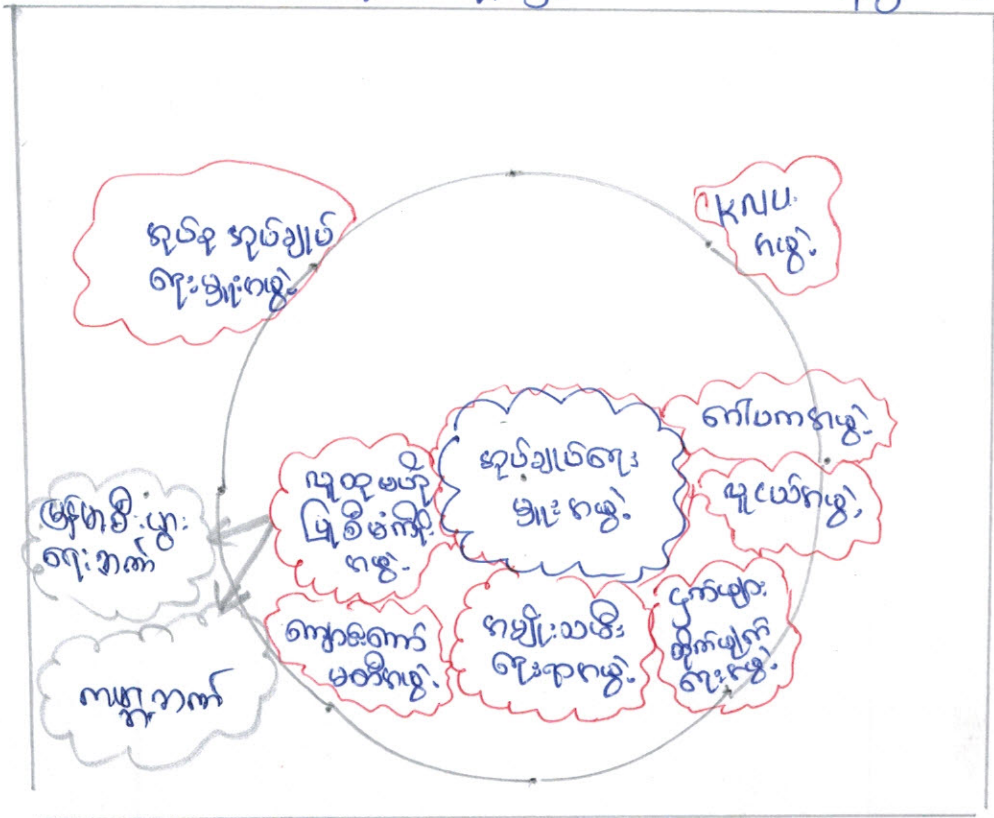 အုပ်စု အုပ်ချုပ်
ရေးမှူးအဖွဲ့
KNU
အဖွဲ့
ဂေါပကအဖွဲ့
လူငယ်အဖွဲ့
အုပ်ချုပ်ရေး
မှူးအဖွဲ့
လူထုဗဟို
ပြုစီမံကိန်း
အဖွဲ့
မြန်မာ့စီးပွား
ရေးဘဏ်
ကမ္ဘာ့ဘဏ်
ကျောင်းကော်
မတီအဖွဲ့
အမျိုးသမီး
ရေးရာအဖွဲ့
ငှက်ဖျား
တိုက်ဖျက်
ရေးအဖွဲ့